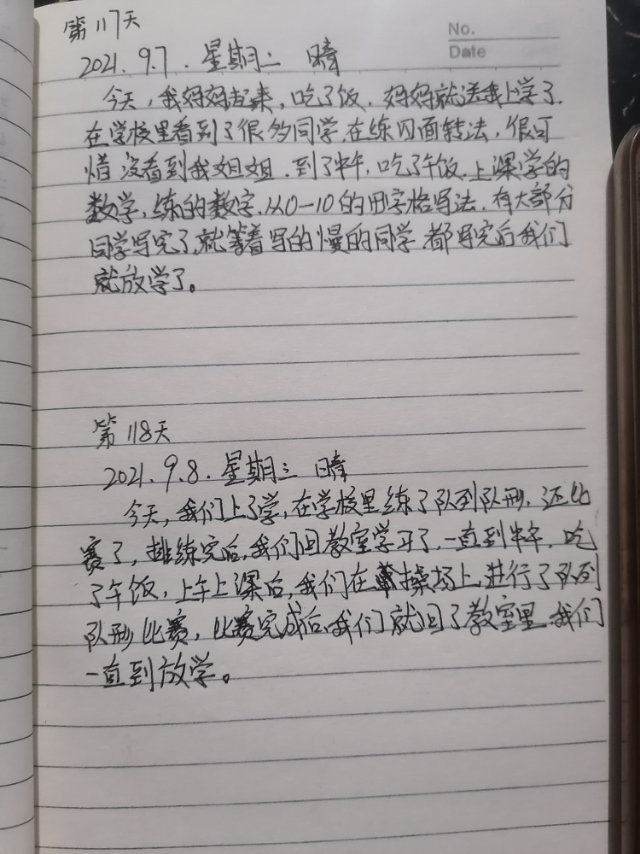 第117天
No.
Date
2021.9.7.星期二 晴
今天，我妈妈起来，吃了饭，妈妈就送我上学了.
在学校里看到了很多同学,在练四面转法，很可
惜没看到我姐姐.到了中午,吃了午饭,上课学的
数学,练的数字,从0-10的田字格写法,有大部分
同学写完了,就等着写的慢的同学.都写完后我们
就放学了。
第118天
2021.9.8.星期三 晴
今天,我们上了学,在学校里练了队列队形,还比
赛了,排练完后,我们回教室学习了,一直到中午,吃
了午饭,上午上课后,我们在操场上,进行了队列
队形比赛,比赛完成后,我们就回了教室里,我们
一直到放学。